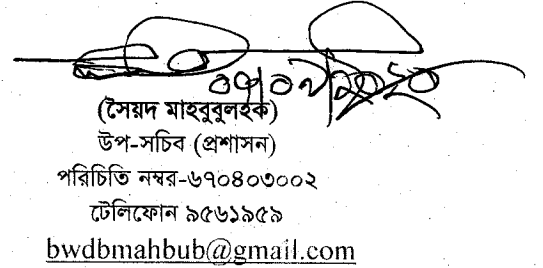 (সৈয়দ মাহবুবুলহক)
উপ-সচিব (প্রশাসন)
পরিচিতি নম্বর-৬৭০৪০৩০০২
টেলিফোন ৯৫৬১৯৫৯
bwdbmahbub@gmail.com